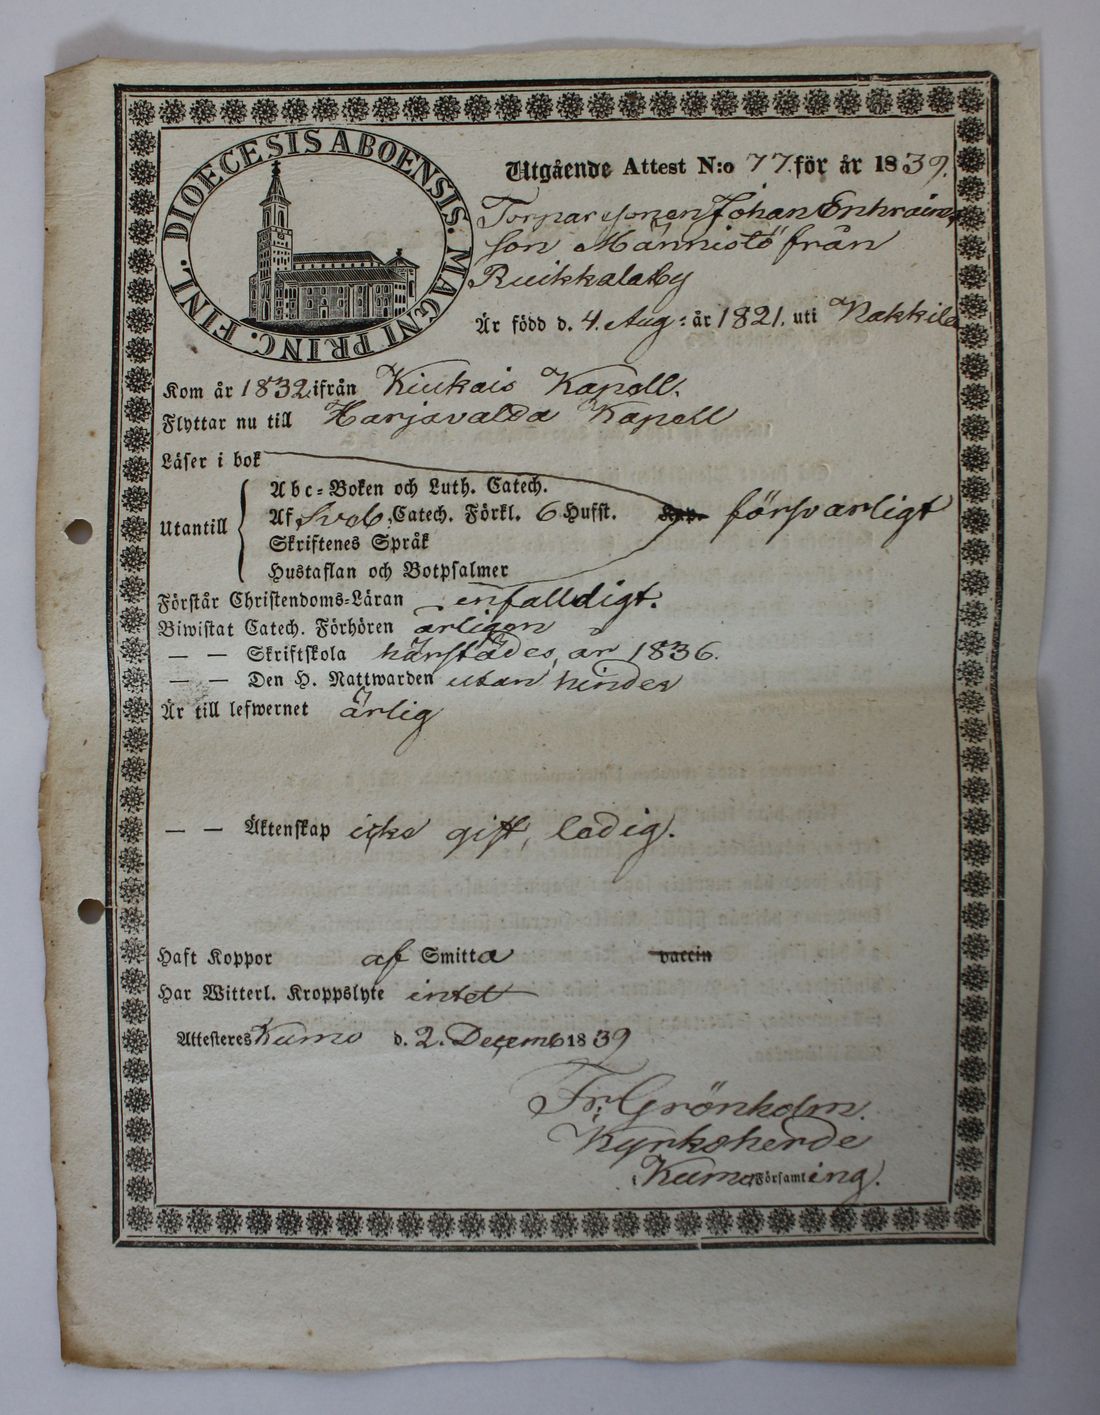 DIOECESIS ABOENSIS. MAGNI PRINC. FINL.
Utgående Attest N:o 77. för år 1839.
Torparesonen Johan Enhrains
son Männistö från
Ruikkala By
Är född d. 4. Aug: år 1821. uti Nakkila
Kom år 1832 ifrån Kiukais Kapell.
Flyttar nu till Harjavalda Kapell
Läser i bok
Utantill
Abc-Boken och Luth. Catech.
Af Sveb. Catech. Förkl. 6 Hufst. Kap. försvarligt
Skriftenes Språk
Hustaflan och Botpsalmer
Förstår Christendoms-Läran enfalldigt.
Biwistat Catech. Förhören årligen
— — Skriftskola härstädes, år 1836.
— — Den H. Nattwarden utan hinder
Är till lefwernet ärlig
— — Äktenskap icke gift, ledig.
Haft Koppor af Smitta vaccin
Har Witterl. Kroppslyte intet
Attesteres Kumo d. 2. Decemb 1839
Fr: Grönholm.
Kyrkoherde
i Kumo Församling.